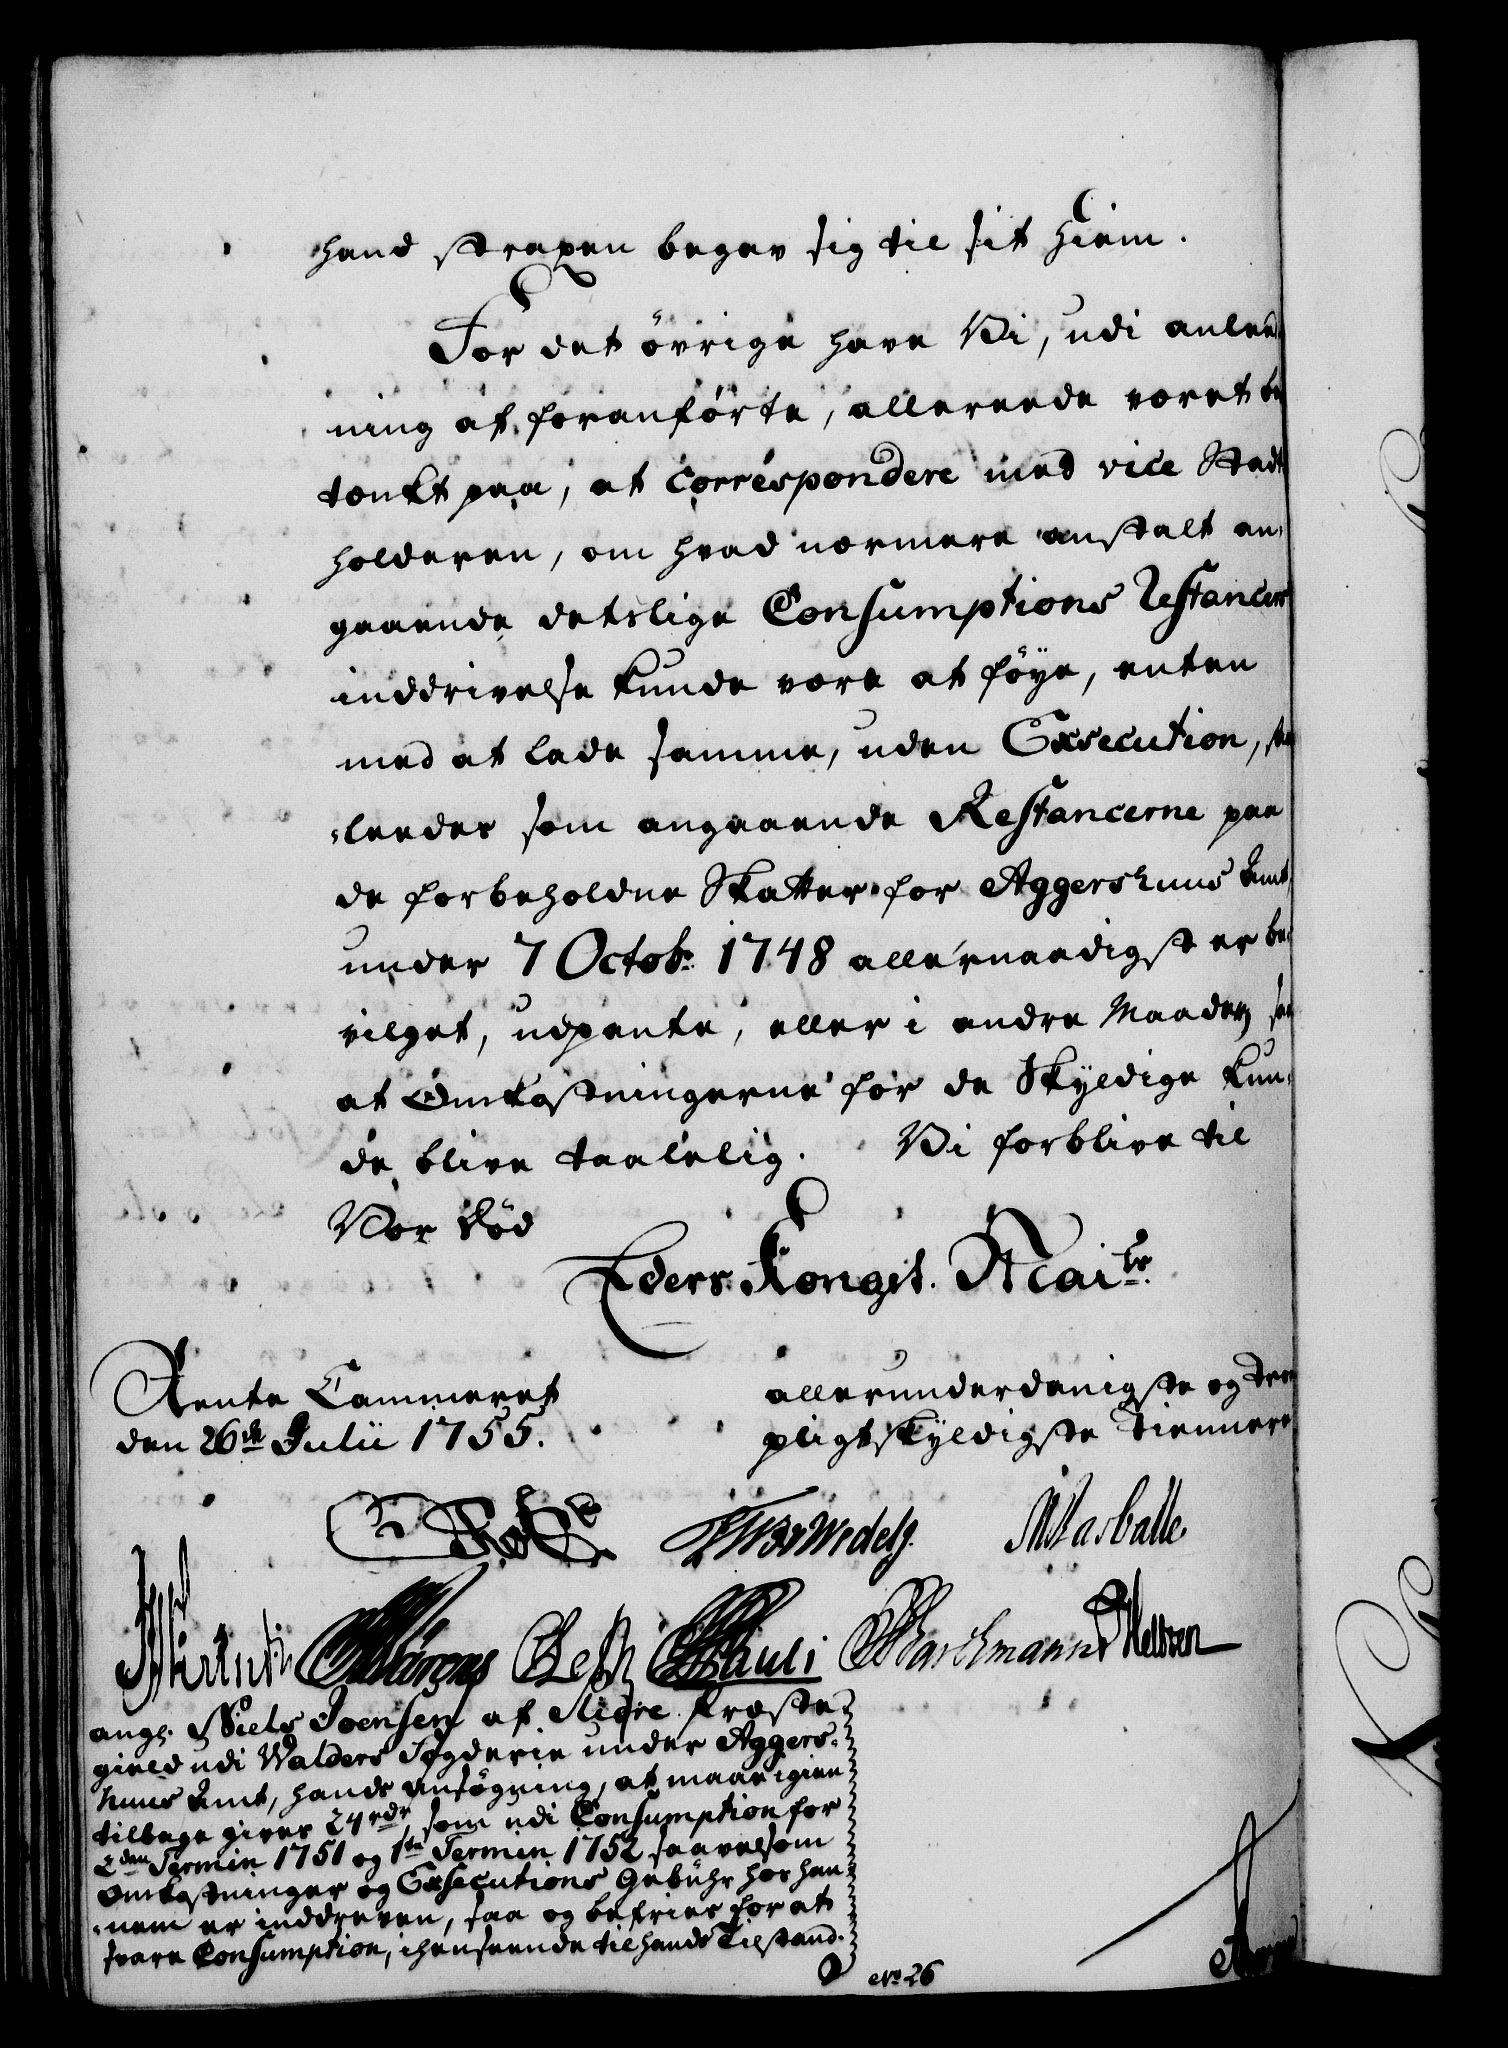 hand strapen begav sig til sit Hiem.
For det övrige have Vi, udi anled
ning af foranförte, allereede været be
tænkt paa, at correspondere med vice Stadt
holderen, om hvad nærmere anstalt an,
gaaende detslige Consumptions Restancers
inddrivelse kunde være at föye, enten
med at lade samme, uden Execution, sta
leedes som angaaende Restancerne paa
de forbeholdne Skatter for Aggershuus Amt,
under 7 Octob: 1748 allernaadigst er be
vilget, udpante, eller i andre Maader, saa
at Omkostningerne for de Skyldige kun,
de blive taalelig. Vi forblive til
Vor Död
Eders Kongel. Mai<sup>ts</sup>
Rente Cammeret
den 26<sup>de</sup> Julii 1755.
allerunderdanigste og troe
pligtskyldigste Tiennere
Wedels.
Pauli
ang: Niels Joensen af Slidre Præste
gield udi Walders Fogderie under Aggers,
huus Amt, hands Ansögning, at maae igien
tilbage gives 24 rdr, som udi Consumption for
2<sup>den</sup> Termin 1751 og 1<sup>ste</sup> Termin 1752 saavelsom
Omkostninger og Executions Gebühr hos han
nem er inddreven, saa og befries for at
svare Consumption, i henseende til hands Tilstand.
No 26